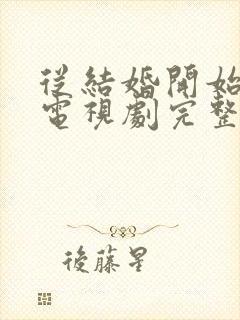 從結婚開始
電視劇完整
後藤星